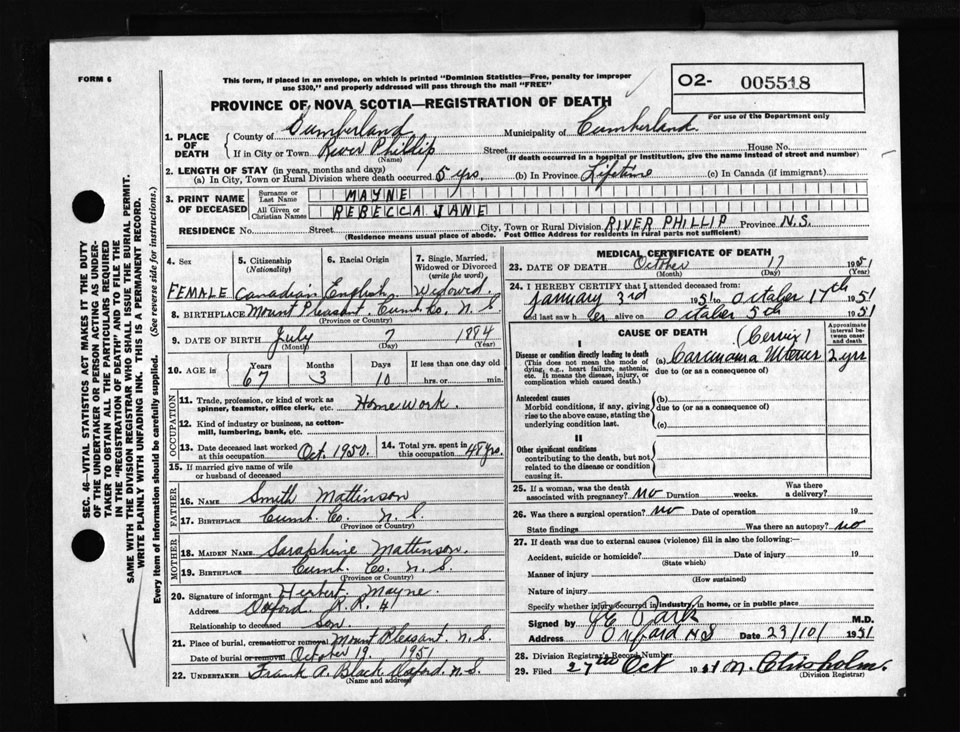 FORM 6
This form, if placed in an envelope, on which is printed "Dominion Statistics—Free, penalty for improper
use $300," and properly addressed will pass through the mail "FREE"
O2- 005518
For use of the Department only
PROVINCE OF NOVA SCOTIA—REGISTRATION OF DEATH
1. PLACE OF DEATH County of Cumberland Municipality of Cumberland
If in City or Town River Phillip Street House No.
(Name) (If death occurred in a hospital or institution, give the name instead of street and number)
2. LENGTH OF STAY (in years, months and days)
(a) In City, Town or Rural Division where death occurred 5 yrs. (b) In Province Lifetime (c) In Canada (if immigrant)
3. PRINT NAME OF DECEASED Surname or Last Name MAYNE
All Given or Christian Names REBECCA JANE
RESIDENCE No. Street City, Town or Rural Division RIVER PHILLIP Province N.S.
(Residence means usual place of abode. Post Office Address for residents in rural parts not sufficient)
4. Sex 5. Citizenship (Nationality) 6. Racial Origin 7. Single, Married, Widowed or Divorced (write the word)
FEMALE Canadian English Widowed
8. BIRTHPLACE Mount Pleasant, Cumb. Co. N.S.
(Province or Country)
9. DATE OF BIRTH July 7 1884
(Month) (Day) (Year)
10. AGE is Years Months Days If less than one day
67 3 10 hrs. or min.
OCCUPATION
11. Trade, profession, or kind of work as spinner, teamster, office clerk, etc. Home Work.
12. Kind of industry or business, as cotton-mill, lumbering, bank, etc.
13. Date deceased last worked at this occupation Oct. 1950. 14. Total yrs. spent in this occupation 48 yrs.
15. If married give name of wife or husband of deceased
FATHER
16. NAME Smith Mattinson
17. BIRTHPLACE Cumb. Co. N.S.
(Province or Country)
MOTHER
18. MAIDEN NAME Saraphine Mattinson.
19. BIRTHPLACE Cumb. Co. N.S.
(Province or Country)
20. Signature of informant Herbert Mayne.
Address Oxford. R.R. 4
Relationship to deceased Son.
21. Place of burial, cremation or removal Mount Pleasant. N.S.
Date of burial or removal October 19 1951
22. UNDERTAKER Frank A. Black Oxford. N.S.
(Name and address)
MEDICAL CERTIFICATE OF DEATH
23. DATE OF DEATH October 17 1951
(Month) (Day) (Year)
24. I HEREBY CERTIFY that I attended deceased from:
January 3rd 1951 to October 17th 1951
and last saw her alive on October 5th 1951
CAUSE OF DEATH
Approximate interval between onset and death
I
(Cervix)
Disease or condition directly leading to death (a) Carcinoma Uterus 2 yrs
(This does not mean the mode of dying, e.g., heart failure, asthenia, etc. It means the disease, injury, or complication which caused death.)
due to (or as a consequence of)
Antecedent causes (b)
Morbid conditions, if any, giving rise to the above cause, stating the underlying condition last.
due to (or as a consequence of)
(c)
II
Other significant conditions
contributing to the death, but not related to the disease or condition causing it.
25. If a woman, was the death associated with pregnancy? No Duration weeks. Was there a delivery?
26. Was there a surgical operation? No Date of operation 19
State findings Was there an autopsy? no
27. If death was due to external causes (violence) fill in also the following:
Accident, suicide or homicide? Date of injury 19
(State which)
Manner of injury
(How sustained)
Nature of injury
Specify whether injury occurred in industry, in home, or in public place
Signed by Park M.D.
Address Oxford N S Date 23/10/ 1951
28. Division Registrar's Record Number
29. Filed 27th Oct 1951 M. Chisholm.
(Division Registrar)
SEC. 46—VITAL STATISTICS ACT MAKES IT THE DUTY
OF THE UNDERTAKER OR PERSON ACTING AS UNDER-
TAKER TO OBTAIN ALL THE PARTICULARS REQUIRED
IN THE "REGISTRATION OF DEATH" AND TO FILE THE
SAME WITH THE DIVISION REGISTRAR WHO SHALL ISSUE THE BURIAL PERMIT.
WRITE PLAINLY WITH UNFADING INK. THIS IS A PERMANENT RECORD.
Every item of information should be carefully supplied. (See reverse side for instructions.)